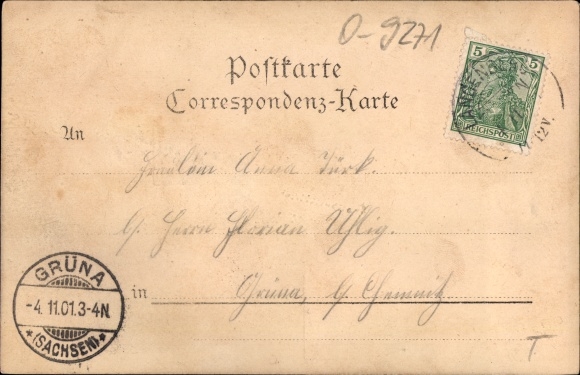 O-9271
Postkarte
Correspondenz-Karte
5 5
REICHSPOST
12V.
An
Fräulein Anna Türk.
b. Herrn Florian Uhlig.
in Grüna, b. Chemnitz
GRÜNA
-4.11.01.3-4N.
*(SACHSEN)*
T